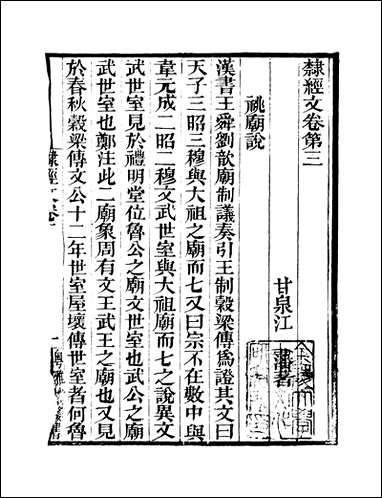 隸經文卷第三
甘泉江藩著
祧廟說
漢書王舜劉歆廟制議奏引王制穀梁傳爲證其文曰
天子三昭三穆與大祖之廟而七又曰宗不在數中與
韋元成二昭二穆文武世室與大祖廟而七之說異文
武世室見於禮明堂位魯公之廟文世室也武公之廟
武世室也鄭注此二廟象周有文王武王之廟也又見
於春秋穀梁傳文公十二年世室屋壞傳世室者何魯
隸經文卷
一
粵雅堂叢書